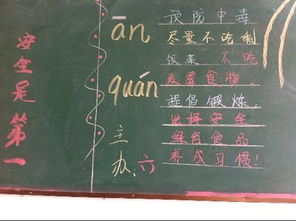 安全是第一
ān
quán
主
办
六
预防中毒
尽量不吃剩
饭菜 不吃
发霉食物,
提倡锻炼,
选择安全
绿色食品
养成习惯!